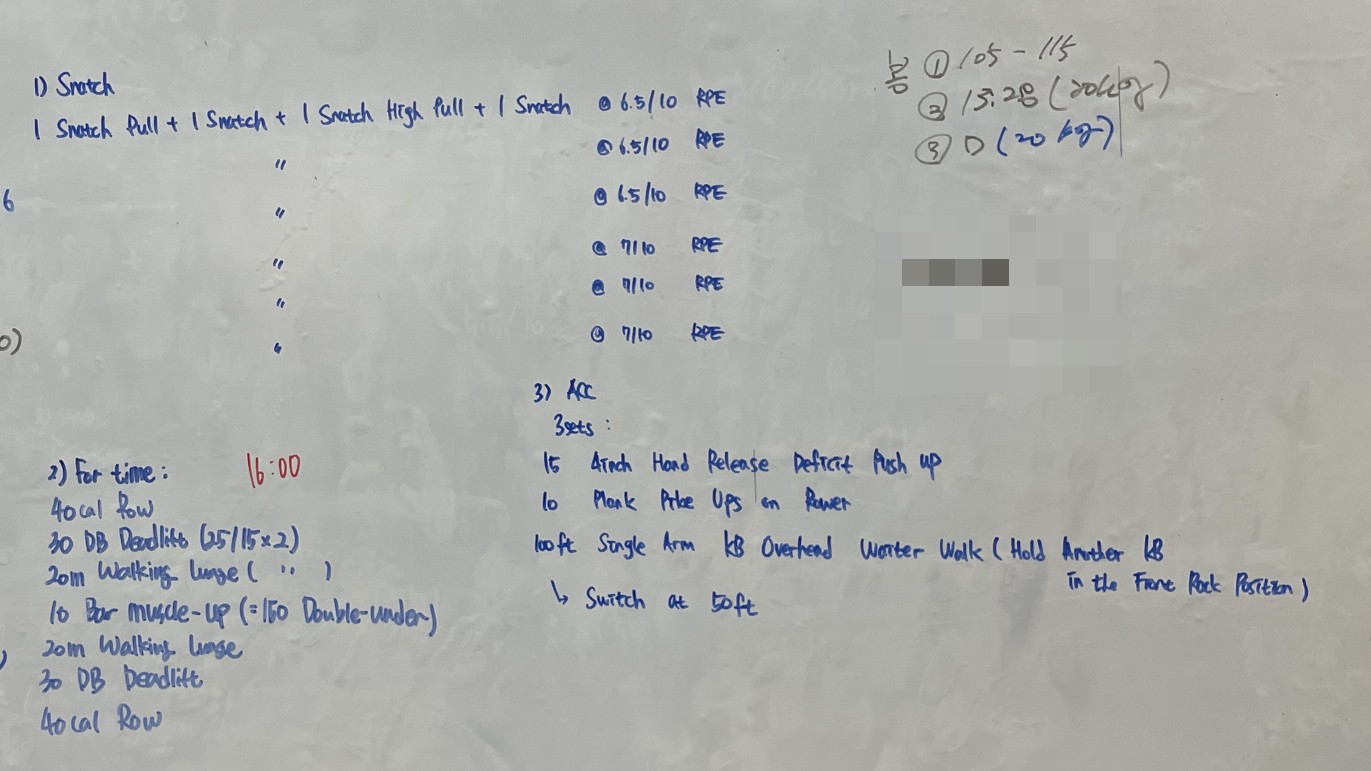 1) Snatch
1 Snatch Pull + 1 Snatch + 1 Snatch High Pull + 1 Snatch @ 6.5/10 RPE
" @ 6.5/10 RPE
" @ 6.5/10 RPE
" @ 7/10 RPE
" @ 7/10 RPE
" @ 7/10 RPE
6
0)
봉 ① 105 - 115
② 15:28 (20kg)
③ D (20 kg)
2) For time: 16:00
40cal Row
30 DB Deadlift (25/15x2)
20m Walking lunge ( " )
10 Bar muscle-up (=150 Double-under)
20m Walking lunge
30 DB Deadlift
40cal Row
3) ACC
3sets :
15 4inch Hand Release Deficit Push up
10 Plank Pike Ups on Rower
100ft Single Arm KB Overhead Waiter Walk (Hold Another KB
in the Front Rack Position)
↳ Switch at 50ft